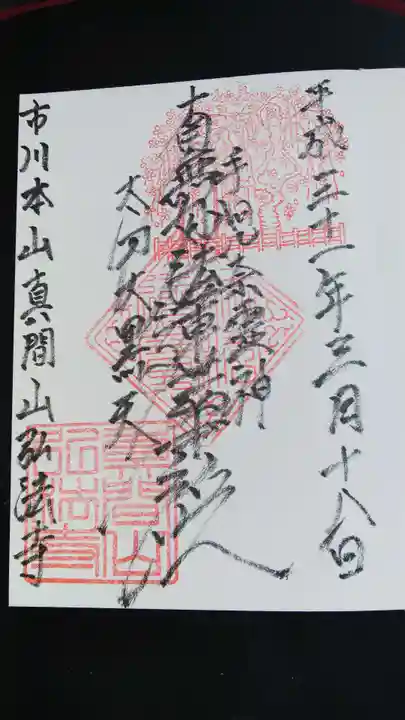 平成三十一年三月十八日
手児奈霊神
南無妙法蓮華経
太刀大黒天
市川本山真間山弘法寺
真間山弘法寺